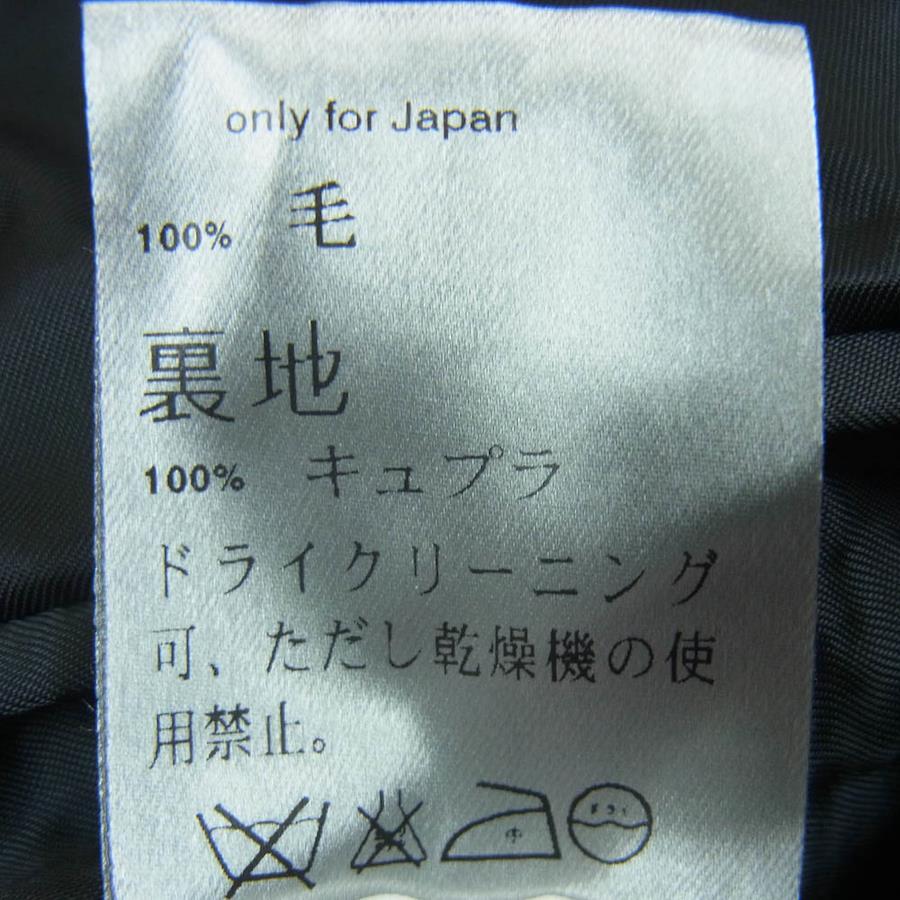 only for Japan
100% 毛
裏地
100% キュプラ
ドライクリーニング
可、ただし乾燥機の使
用禁止。
中